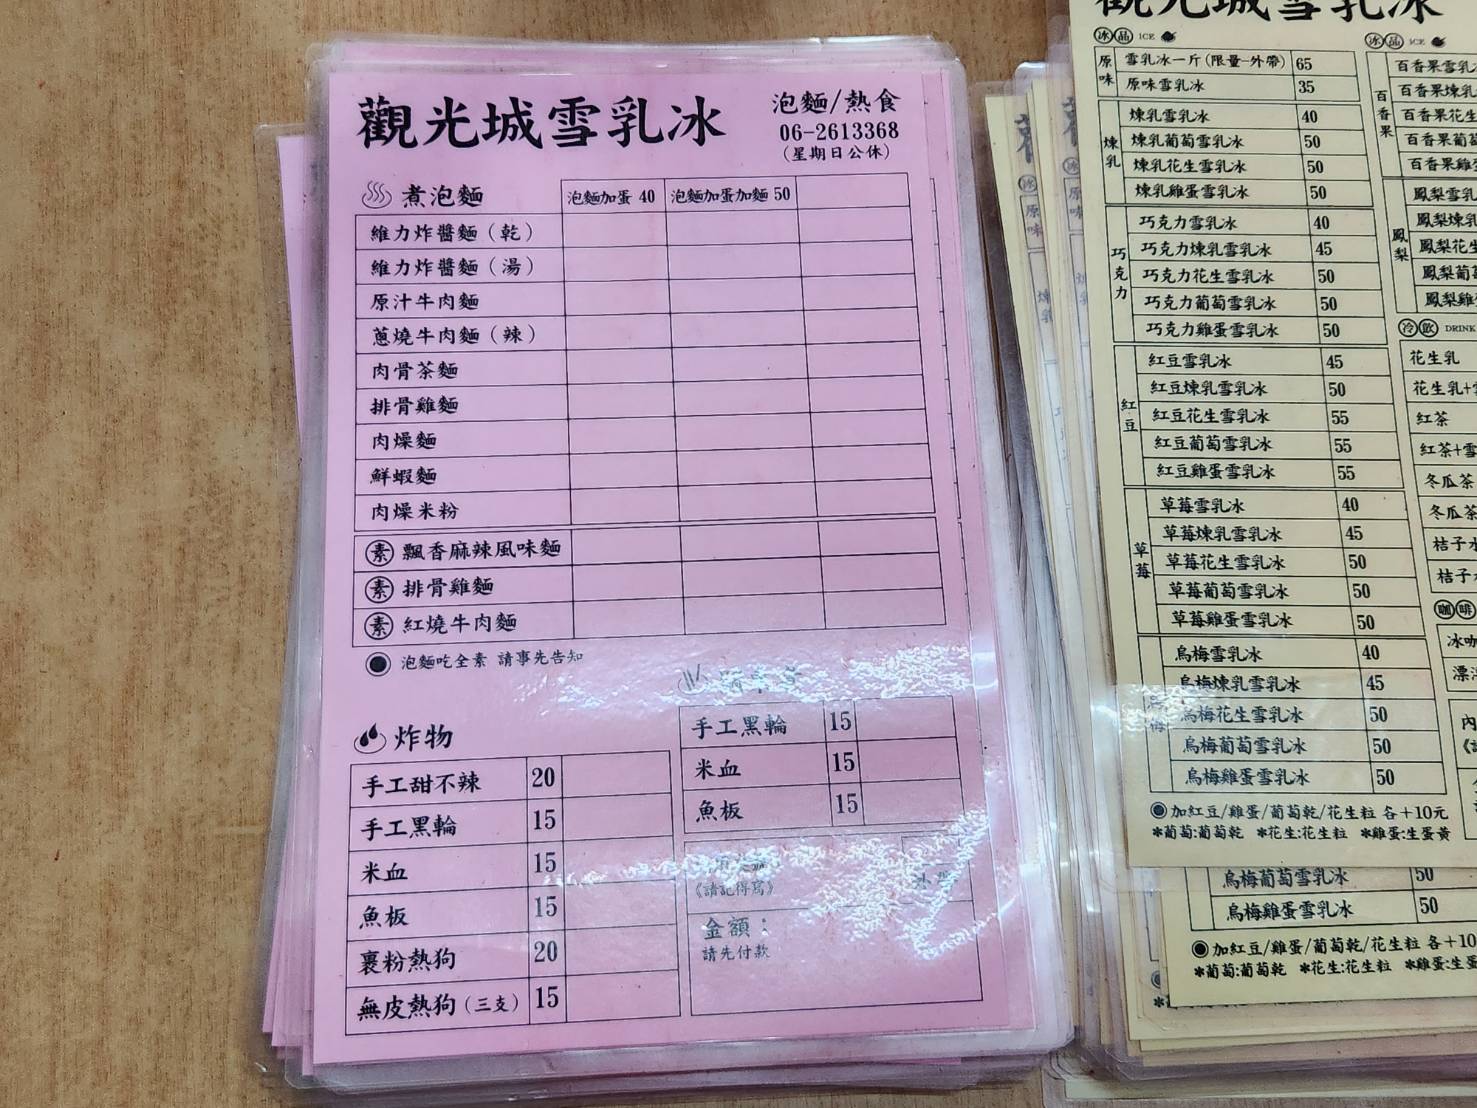 觀光城雪乳冰
泡麵/熱食
06-2613368
(星期日公休)
煮泡麵 泡麵加蛋 40 泡麵加蛋加麵 50
維力炸醬麵(乾)
維力炸醬麵(湯)
原汁牛肉麵
蔥燒牛肉麵(辣)
肉骨茶麵
排骨雞麵
肉燥麵
鮮蝦麵
肉燥米粉
素 飄香麻辣風味麵
素 排骨雞麵
素 紅燒牛肉麵
泡麵吃全素 請事先告知
炸物
手工甜不辣 20
手工黑輪 15
米血 15
魚板 15
裹粉熱狗 20
無皮熱狗(三支) 15
手工黑輪 15
米血 15
魚板 15
《請記得寫》
金額:
請先付款
觀光城雪乳冰
冰品 ICE
原味
雪乳冰一斤(限量-外帶) 65
原味雪乳冰 35
煉乳
煉乳雪乳冰 40
煉乳葡萄雪乳冰 50
煉乳花生雪乳冰 50
煉乳雞蛋雪乳冰 50
巧克力
巧克力雪乳冰 40
巧克力煉乳雪乳冰 45
巧克力花生雪乳冰 50
巧克力葡萄雪乳冰 50
巧克力雞蛋雪乳冰 50
紅豆
紅豆雪乳冰 45
紅豆煉乳雪乳冰 50
紅豆花生雪乳冰 55
紅豆葡萄雪乳冰 55
紅豆雞蛋雪乳冰 55
草莓
草莓雪乳冰 40
草莓煉乳雪乳冰 45
草莓花生雪乳冰 50
草莓葡萄雪乳冰 50
草莓雞蛋雪乳冰 50
烏梅
烏梅雪乳冰 40
烏梅煉乳雪乳冰 45
烏梅花生雪乳冰 50
烏梅葡萄雪乳冰 50
烏梅雞蛋雪乳冰 50
加紅豆/雞蛋/葡萄乾/花生粒 各+10元
*葡萄:葡萄乾 *花生:花生粒 *雞蛋:生蛋黃
冰品 ICE
百香果
百香果雪乳
百香果煉乳
百香果花生
百香果葡萄
百香果雞
鳳梨
鳳梨雪乳
鳳梨煉乳
鳳梨花生
鳳梨葡萄
鳳梨雞蛋
冷飲 DRINK
花生乳
花生乳+
紅茶
紅茶+雪
冬瓜茶
冬瓜茶
桔子水
桔子
咖啡
冰咖
漂
內
烏梅葡萄雪乳冰 50
烏梅雞蛋雪乳冰 50
加紅豆/雞蛋/葡萄乾/花生粒 各+10
*葡萄:葡萄乾 *花生:花生粒 *雞蛋:生蛋